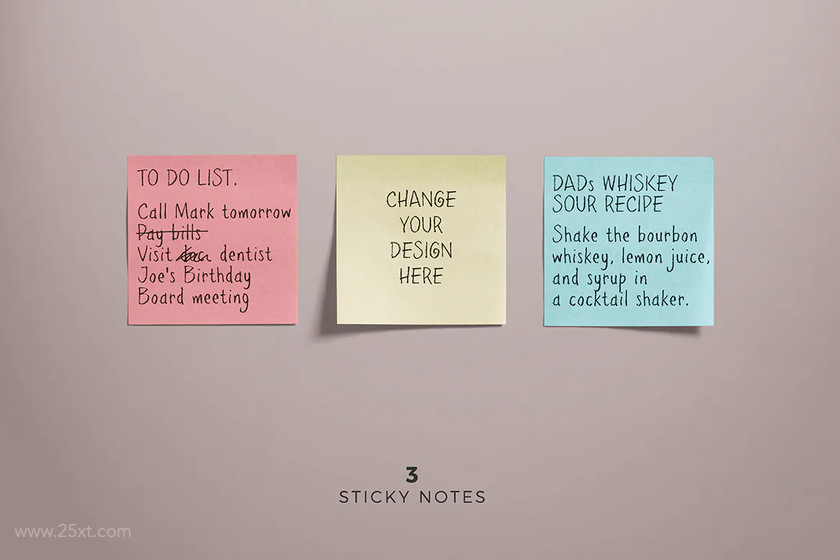 TO DO LIST.
Call Mark tomorrow
Pay bills
Visit dentist
Joe's Birthday
Board meeting
CHANGE
YOUR
DESIGN
HERE
DADs WHISKEY
SOUR RECIPE
Shake the bourbon
whiskey, lemon juice,
and syrup in
a cocktail shaker.
3
STICKY NOTES
www.25xt.com